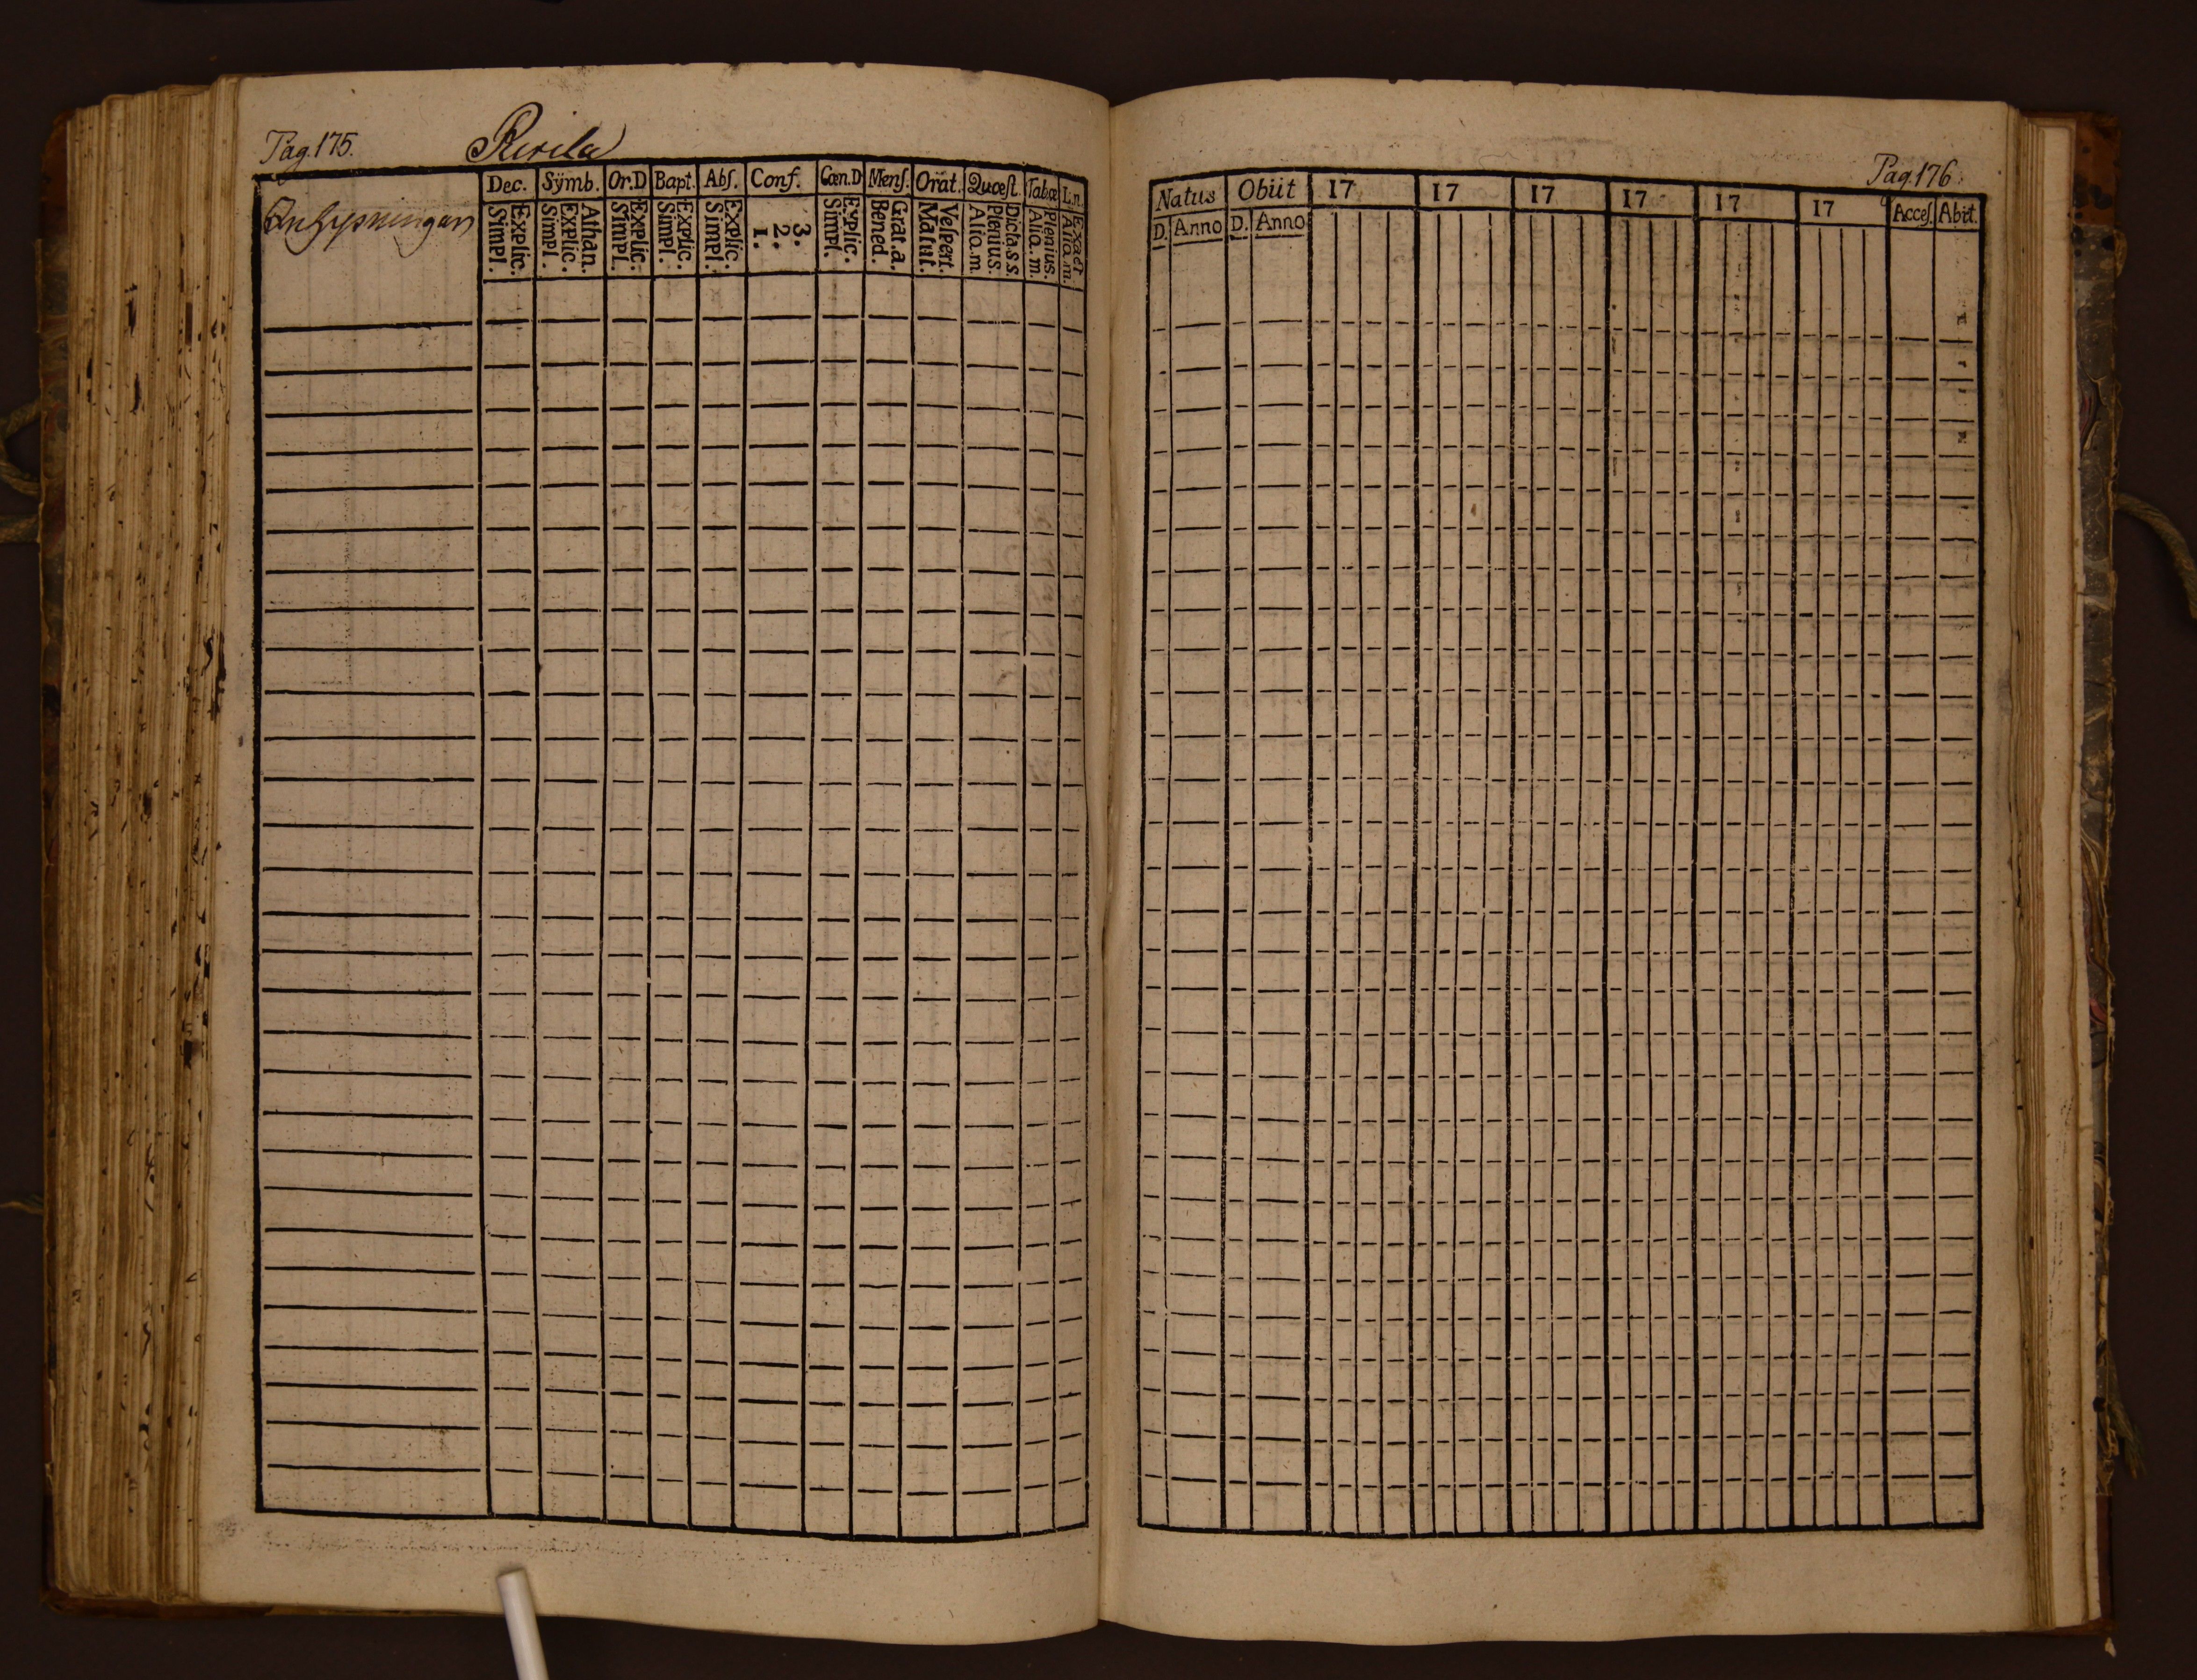 Pag.175.
Rixila
Inhysningar
Dec. Sÿmb. Or.D Bapt. Abſ. Conf. Cœn.D Menſ. Orat. Quæſt. Tabæ L.n.
Simpl. Explic. Simpl. Explic. Athan. Simpl. Explic. Simpl. Explic. Simpl. Explic. 1. 2. 3. Simpl. Explic. Bened. Grat.a. Matut. Veſpert. Alio.m. Plenius. Dicta.s.s. Alia.m. Plenius. Alia.m. Exact
Pag.176.
Natus Obiit 17 17 17 17 17 17 Acceſ. Abit.
D. Anno D. Anno